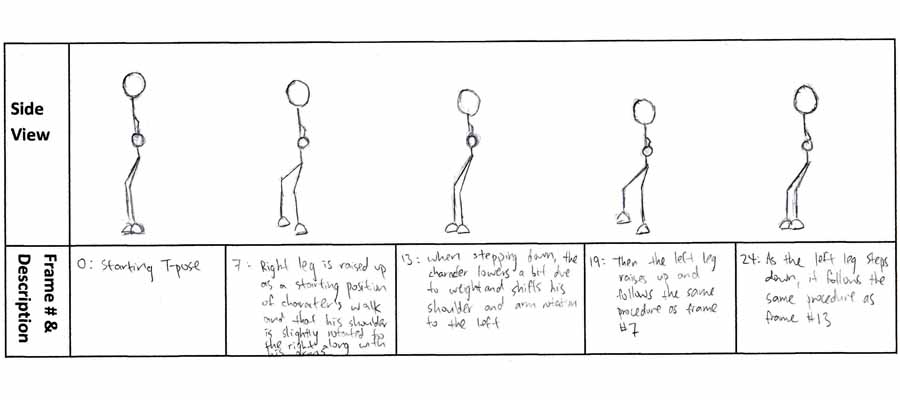 Side
View
Frame # &
Description
0: Starting T-pose
7: Right leg is raised up
as a starting position
of character's walk
and that his shoulder
is slightly rotated to
the right along with
his arms
13: When stepping down, the
character lowers a bit due
to weight and shifts his
shoulder and arm rotation
to the left
19: Then the left leg
raises up and
follows the same
procedure as frame
#7
24: As the left leg steps
down, it follows the
same procedure as
frame #13